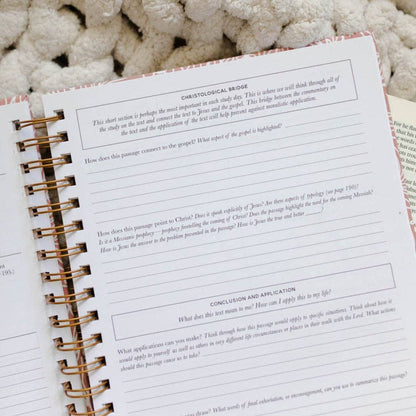 CHRISTOLOGICAL BRIDGE
This short section is perhaps the most important in each study day. This is where we will think through all of
the study on this text and connect the text to Jesus and the gospel. This bridge between the commentary on
the text and the application of the text will help prevent against moralistic application.
How does this passage connect to the gospel? What aspect of the gospel is highlighted?
How does this passage point to Christ? Does it speak explicitly of Jesus? Are there aspects of typology (see page 190)?
Is it a Messianic prophecy— prophecy foretelling the coming of Christ? Does the passage highlight the need for the coming Messiah?
How is Jesus the answer to the problem presented in the passage? How is Jesus the true and better ____?
CONCLUSION AND APPLICATION
What does this text mean to me? How can I apply this to my life?
What applications can you make? Think through how this passage would apply to specific situations. Think about how it
would apply to yourself as well as others in very different life circumstances or places in their walk with the Lord. What actions
should this passage cause us to take?
draw? What words of final exhortation, or encouragement, can you use to summarize this passage?